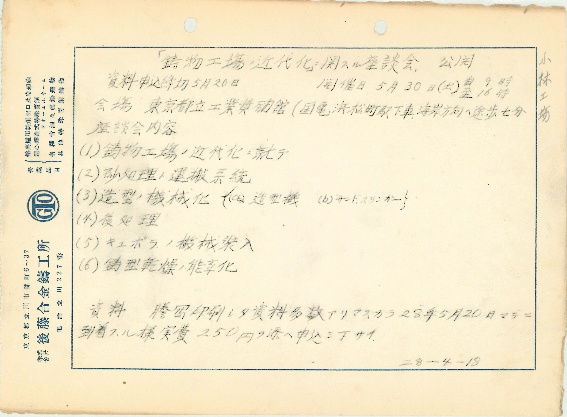 「鋳物工場ノ近代化ニ関スル座談会」公開
資料申込締切5月20日 開催日5月30日(土) 自9時 至16時
会場 東京都立工業奨励館(国電浜松町駅下車海岸方向ヘ徒歩七分
座談会内容
(1) 鋳物工場ノ近代化ニ就テ
(2) 砂処理ノ運搬系統
(3) 造型ノ機械化 {(a) 造型機 (b) サンドスリンガー}
(4) 後処理
(5) キュポラノ機械装入
(6) 鋳型乾燥ノ能率化
資料 謄写印刷シタ資料多数アリマスカラ28年5月20日マデニ
到着スル様実費250円ヲ添ヘ申込ミ下サイ
28-4-18
小林工場
株式会社 後藤合金鋳工所
東京都立川市
電話立川327番
GTO